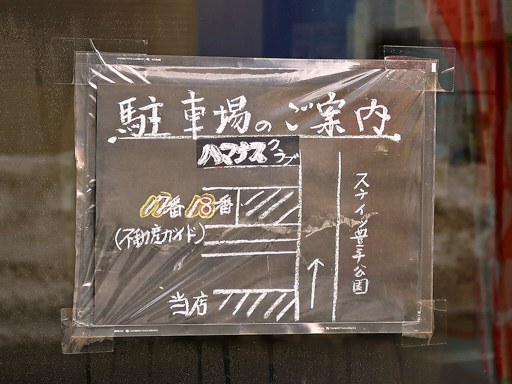 駐車場のご案内
ハマナスクラブ
17番 18番
(不動産ガイド)
当店
ステイツ豊平公園